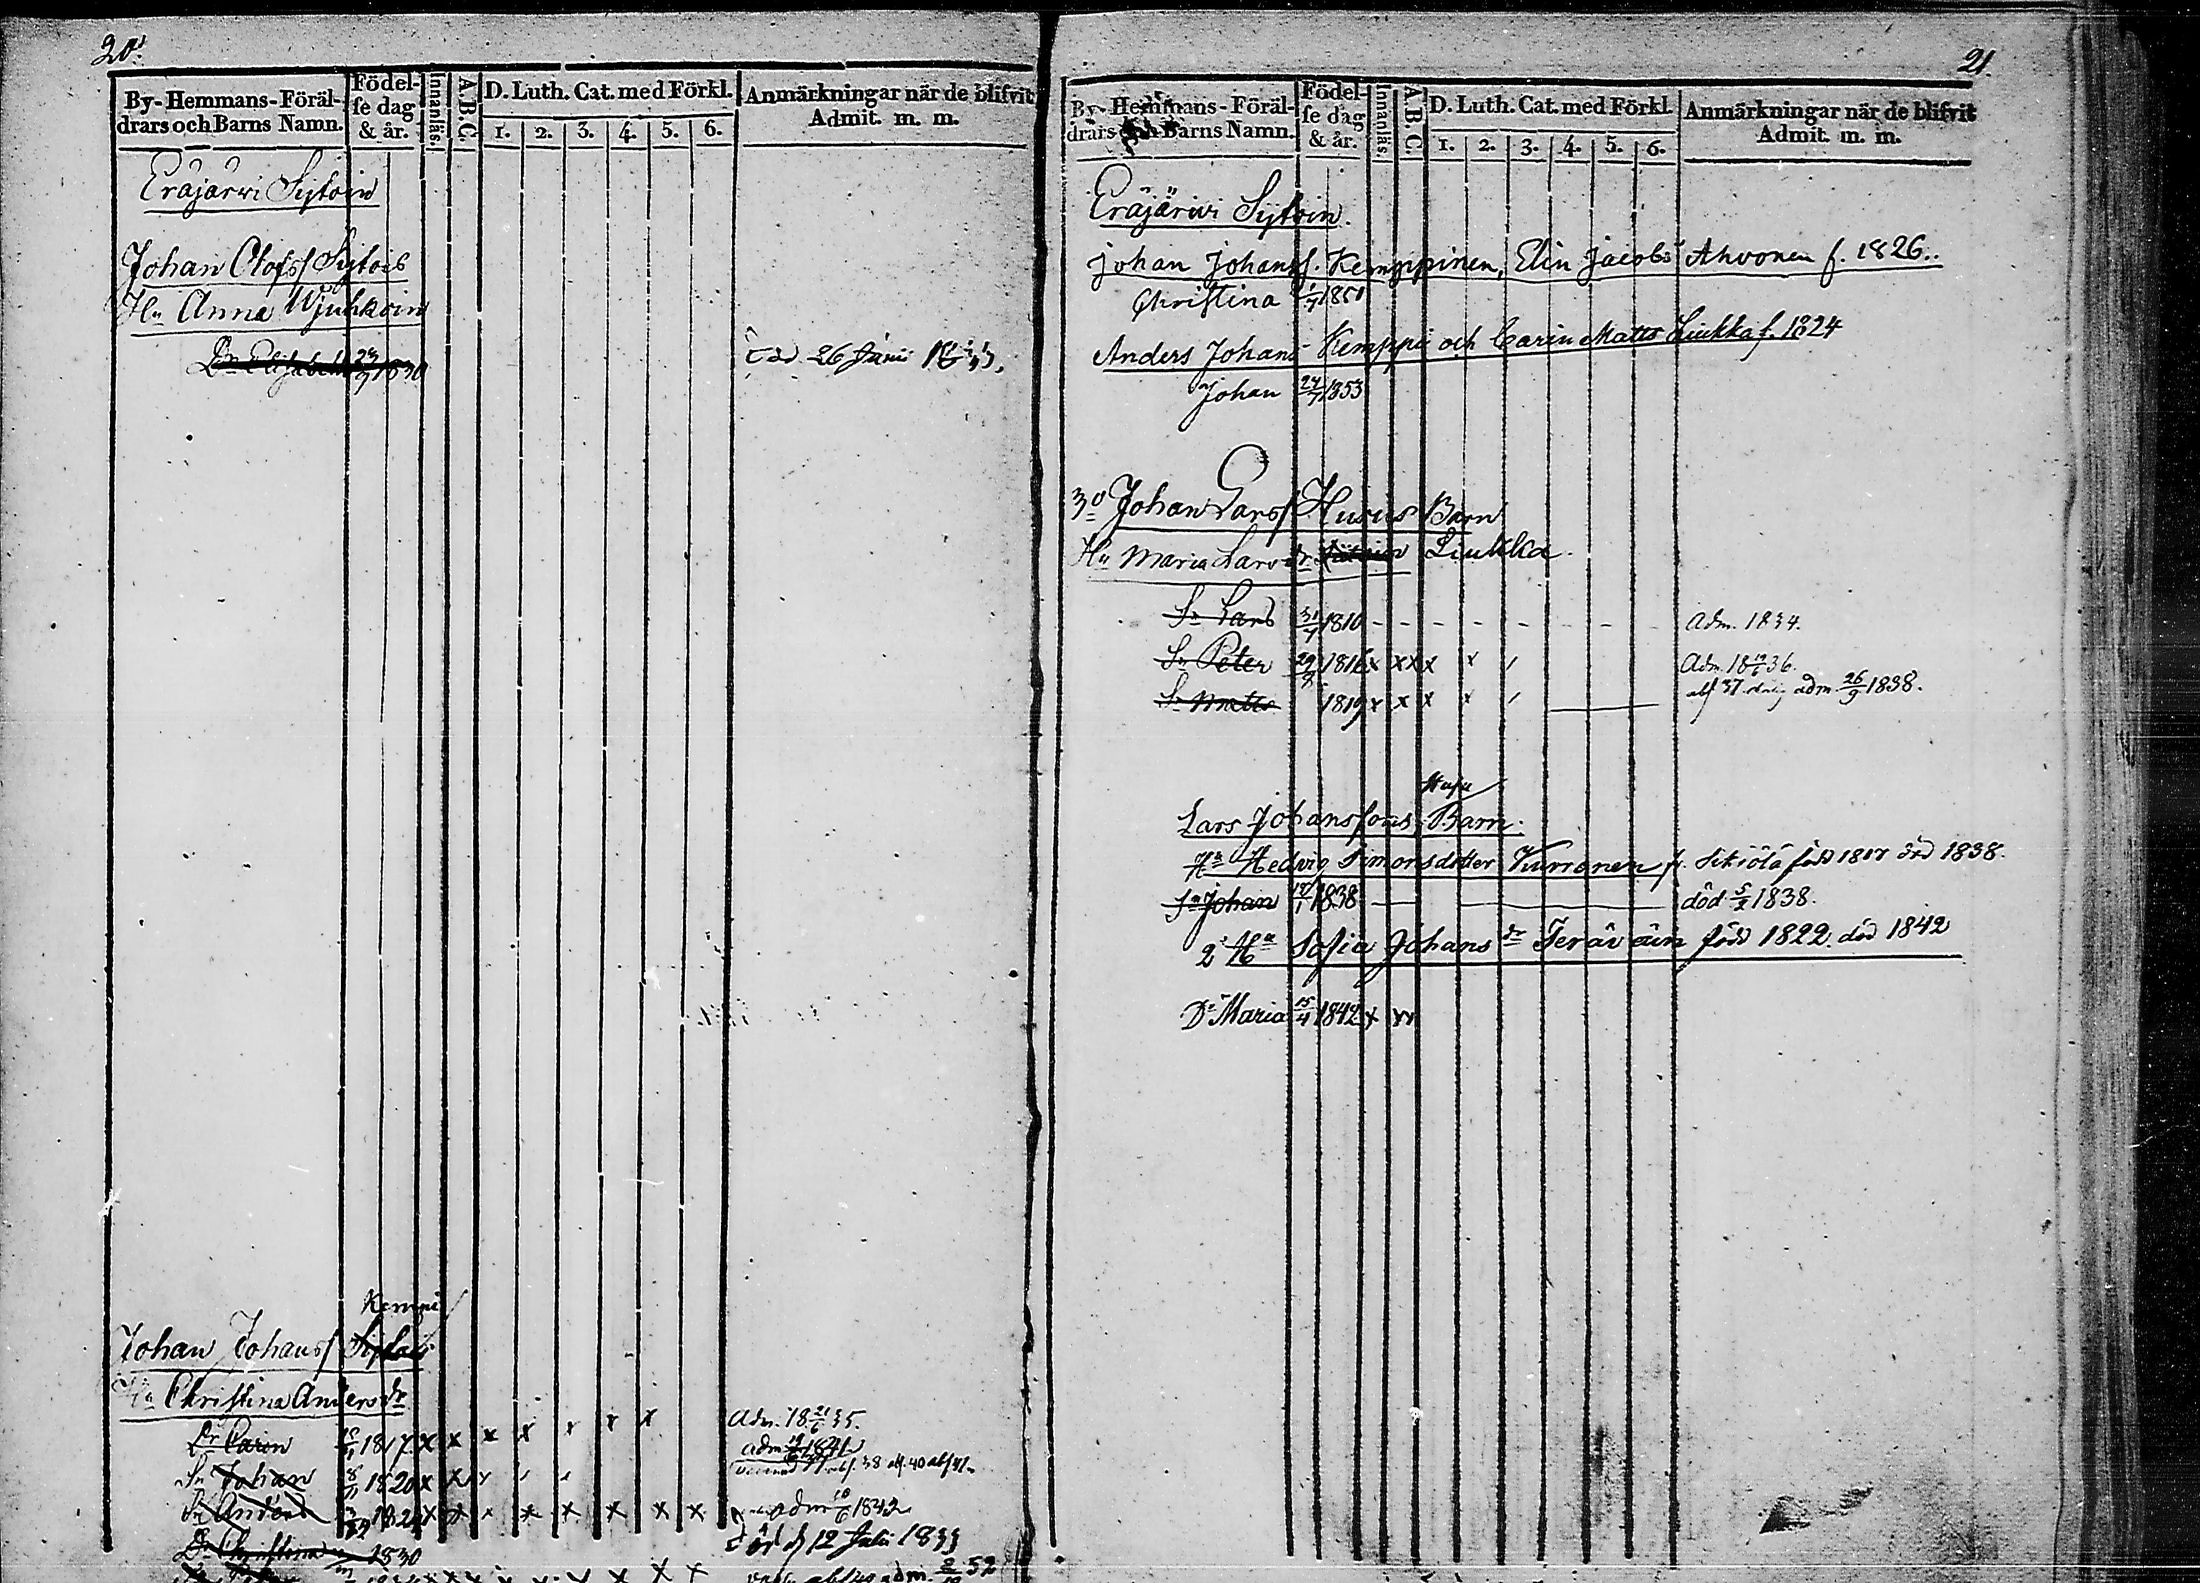 20.
By-Hemmans-Föräl-
drars och Barns Namn.
Födel-
se dag
& år.
Innanläs.
A.B.C.
D. Luth. Cat. med Förkl.
1. 2. 3. 4. 5. 6.
Anmärkningar när de blifvit
Admit. m. m.
Eräjärwi Sijtoin
Johan Olofss Sijtois
Hu Anna Wjuhkoin
Dr Elisabeth 1830
26 1833.
Kempi
Johan Johanss
Hu Christina Andersdr
Dr Carin 1817 x x x x x x x Adm. 18 21/6 35.
Sn Johan 1820 x x adm 1841
38 40
Sn Anders 182 x x x x x x x x adm 1842
Dr Christina 1830 död d 12 Julii 1833
adm. 52
21.
By-Hemmans-Föräl-
drars och Barns Namn.
Födel-
se dag
& år.
Innanläs.
A.B.C.
D. Luth. Cat. med Förkl.
1. 2. 3. 4. 5. 6.
Anmärkningar när de blifvit
Admit. m. m.
Eräjärwi Sijtoin.
Johan Johanss. Kemppinen, Elin Jacobs Ahvonen f. 1826..
Christina 1/7 1851
Anders Johans Kemppi och Carin Matts Liukka f. 1824
Johan 24/7 1853
3o Johan Larss Husus Barn
Hu Maria Lars dr Liukka
Sn Lars 31/7 1810 - - - - - - - Adm. 1834.
Sn Peter 1816 x x x x x Adm. 18 36.
Sn Matts 1819 x x x x abs 37. adm. 26/9 1838.
Husu
Lars Johanssons Barn.
Ha Hedvig Simonsdotter Kurronen fr. Sikiölä född 1817 död 1838.
Sn Johan 1838 död 5/2 1838.
2 Ha Sofia Johans dr Teräväin född 1822. död 1842
Dr Maria 15/4 1842 x xx